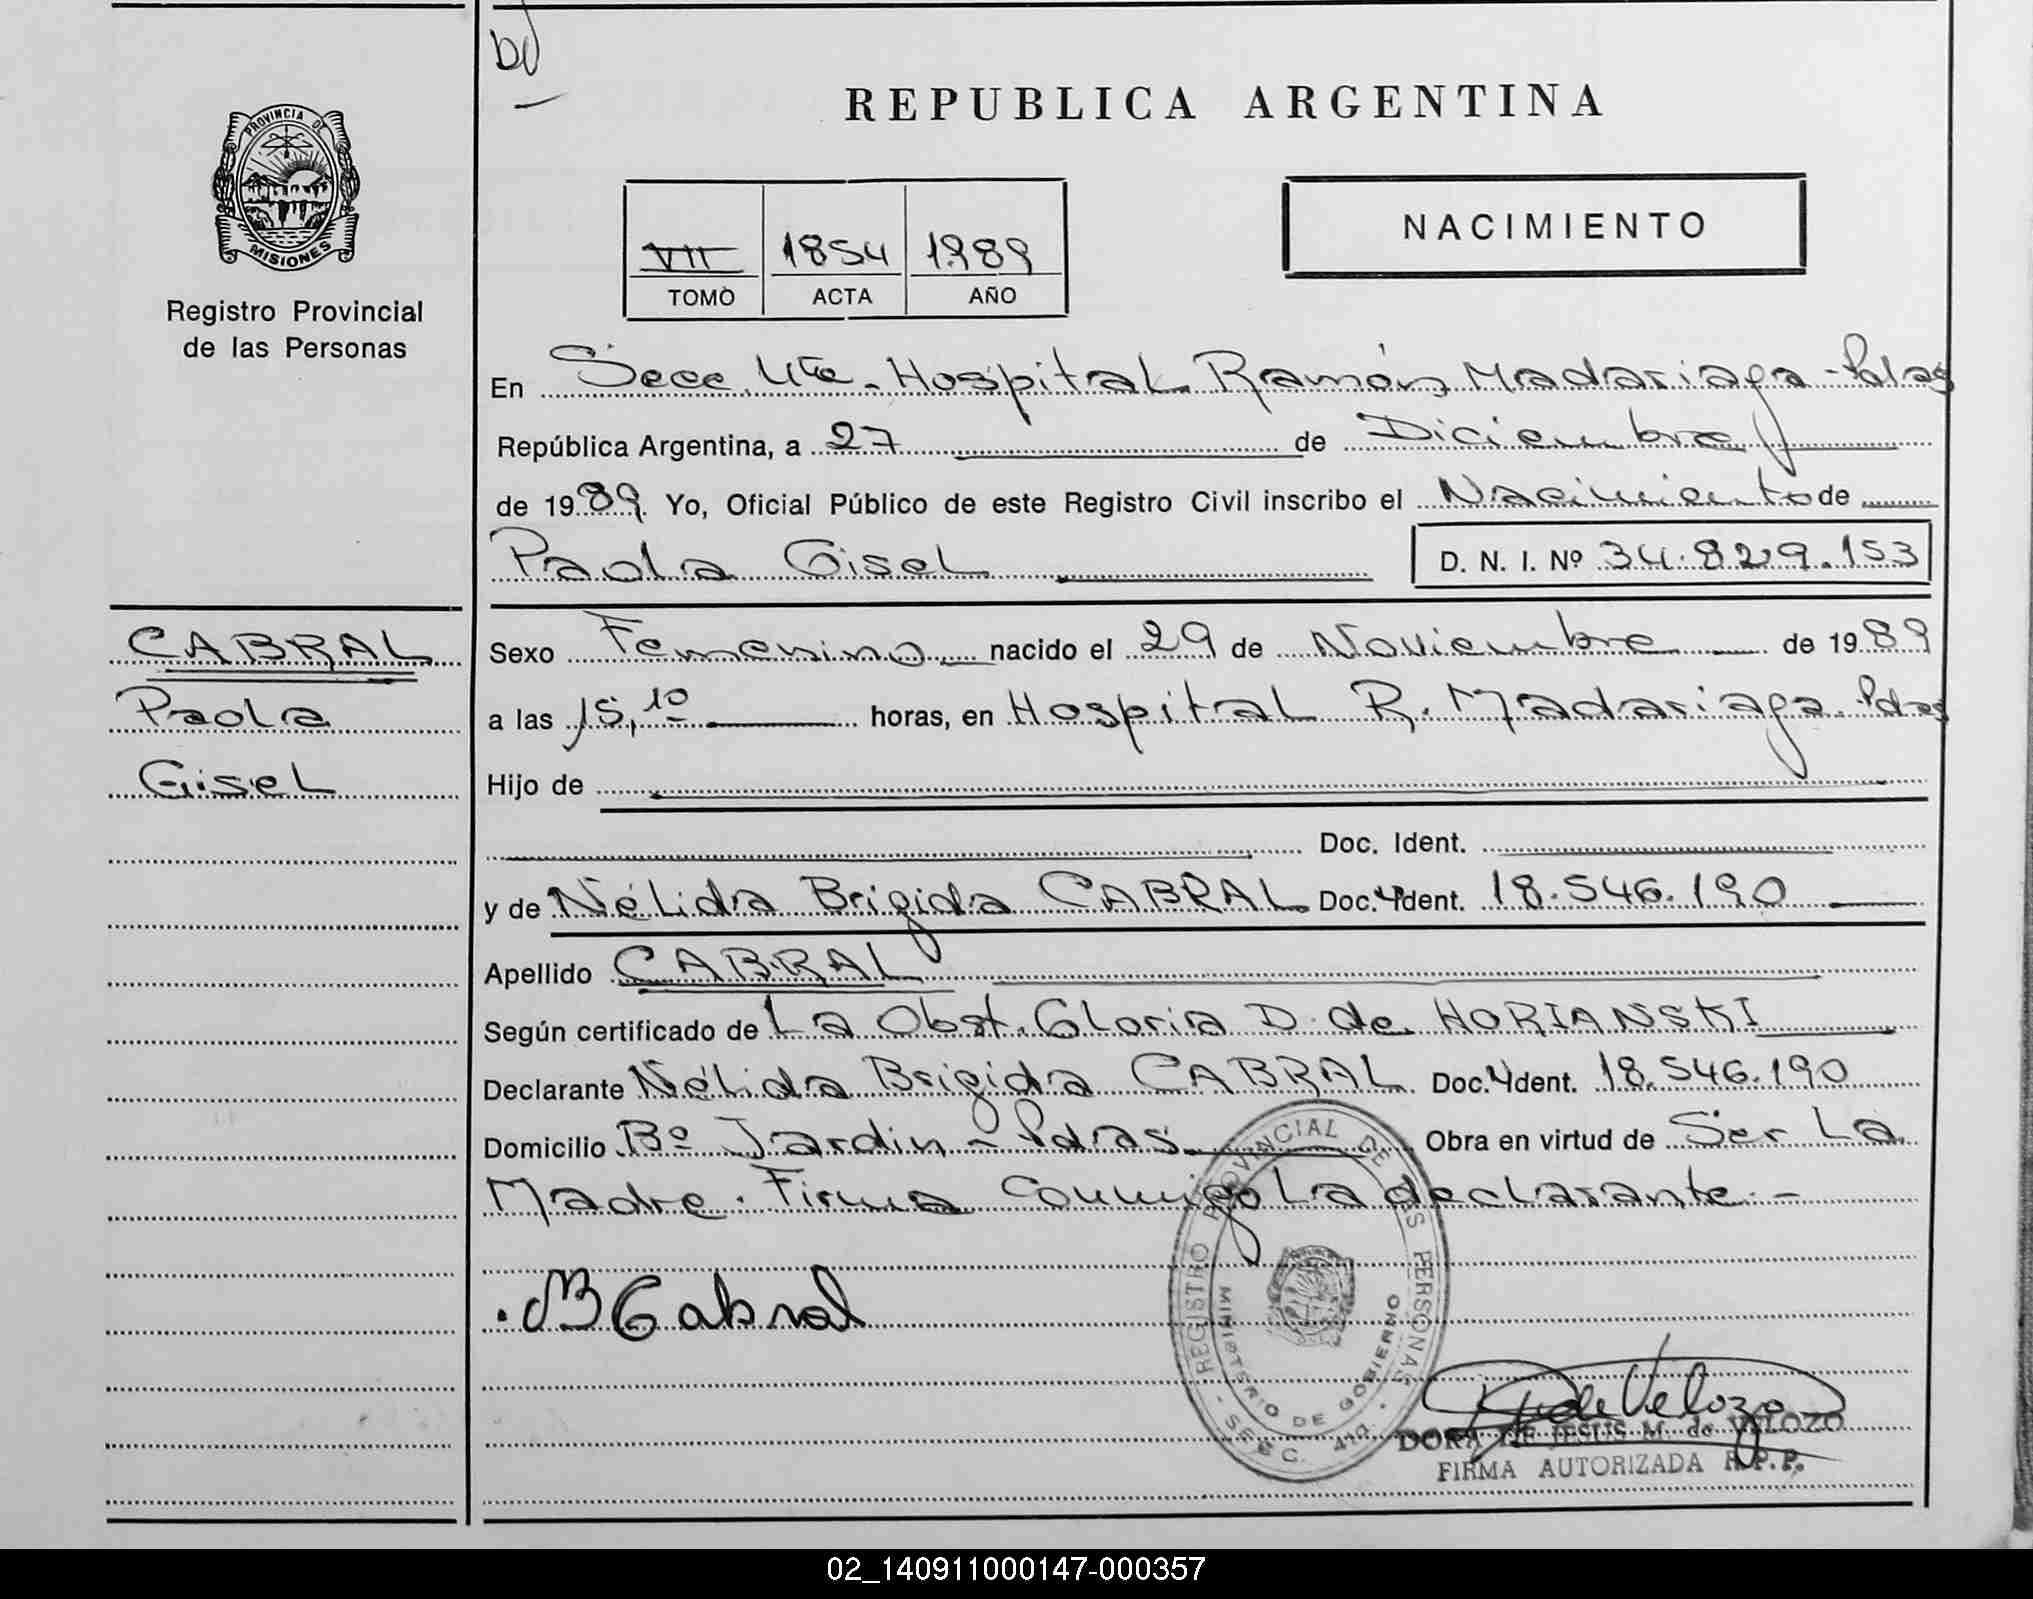 PROVINCIA DE
MISIONES
Registro Provincial
de las Personas
REPUBLICA ARGENTINA
VII 1854 1989
TOMO ACTA AÑO
NACIMIENTO
En Secc. 4ta. Hospital Ramón Madariaga - Pdas
República Argentina, a 27 de Diciembre
de 1989. Yo, Oficial Público de este Registro Civil inscribo el Nacimiento de
Paola Gisel D. N. I. Nº 34.829.153
CABRAL
Paola
Gisel
Sexo Femenino nacido el 29 de Noviembre de 1989
a las 15,10 horas, en Hospital R. Madariaga. Pdas
Hijo de
Doc. Ident.
y de Nélida Brigida CABRAL Doc. Ident. 18.546.190
Apellido CABRAL
Según certificado de La Obst. Gloria D. de HORIANSKI
Declarante Nélida Brigida CABRAL Doc. Ident. 18.546.190
Domicilio Bº Jardin - Pdas. Obra en virtud de Ser La
Madre. Firma Conmigo La declarante.-
NB Cabral
REGISTRO PROVINCIAL DE LAS PERSONAS
MINISTERIO DE GOBIERNO
- SECC. 4ta. -
de Velozo
DORA DE JESUS M. de VELOZO
FIRMA AUTORIZADA R.P.P.
02_140911000147-000357